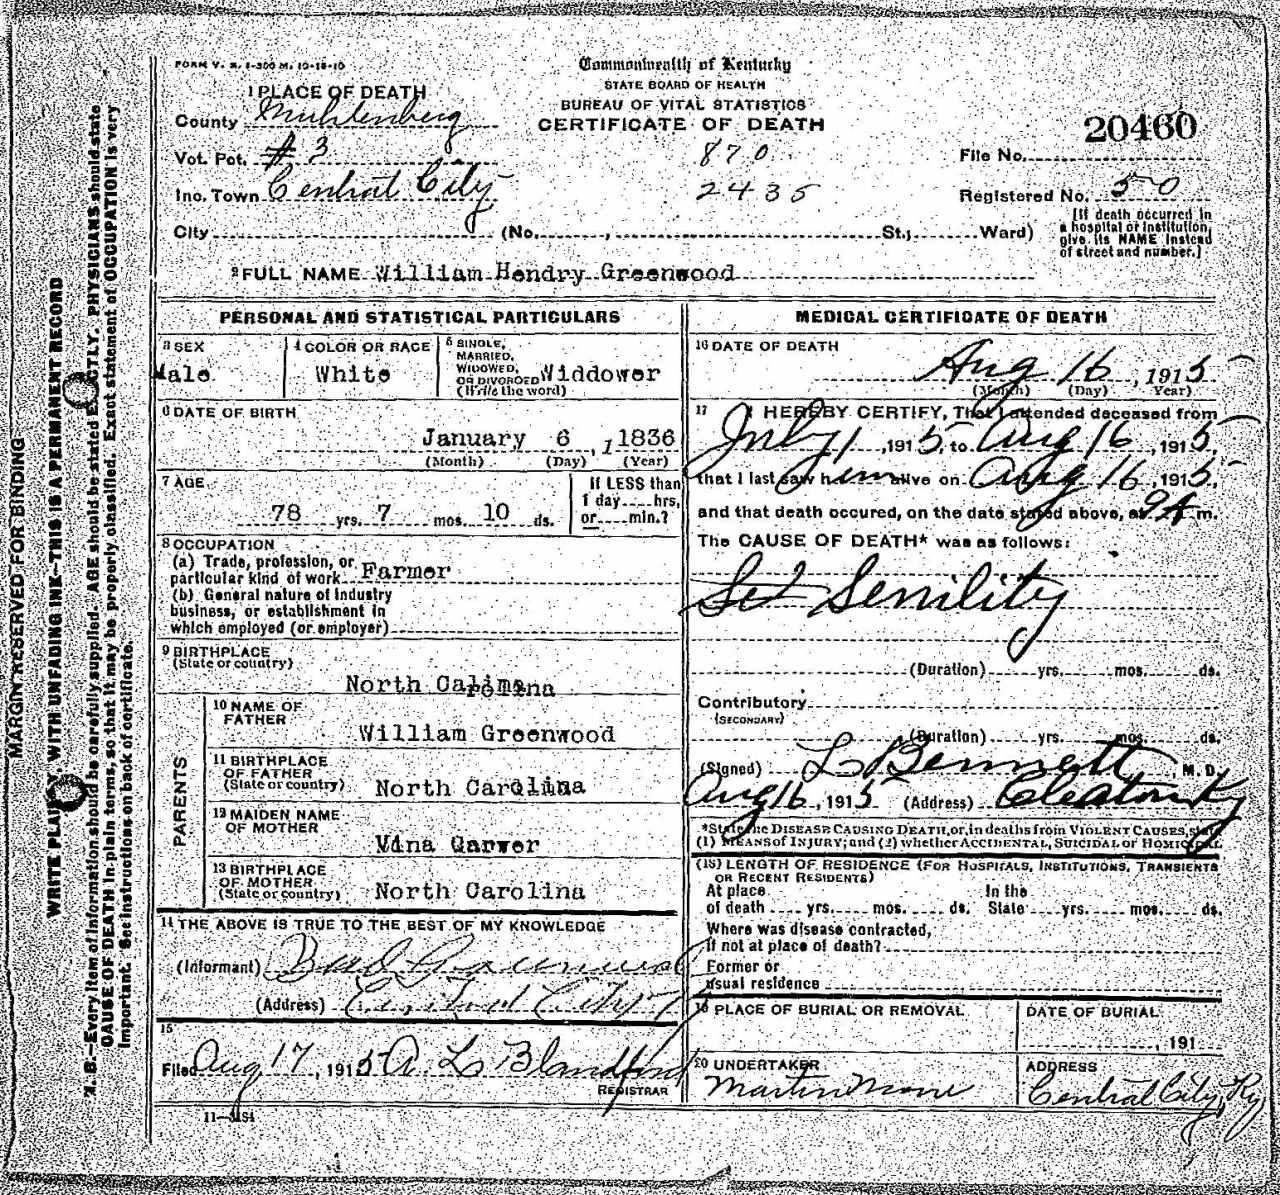 FORM V. S. 1-300 M. 10-18-10
Commonwealth of Kentucky
STATE BOARD OF HEALTH
BUREAU OF VITAL STATISTICS
CERTIFICATE OF DEATH
1 PLACE OF DEATH
County Muhlenberg
Vot. Pct. #3
Inc. Town Central City
City (No. , St.; Ward)
870
2435
20460
File No.
Registered No. 50
[If death occurred in
a hospital or institution,
give its NAME instead
of street and number.]
2 FULL NAME William Hendry Greenwood
PERSONAL AND STATISTICAL PARTICULARS
3 SEX
Male
4 COLOR OR RACE
White
5 SINGLE,
MARRIED,
WIDOWED,
OR DIVORCED
(Write the word)
Widdower
6 DATE OF BIRTH
January 6 , 1 1836
(Month) (Day) (Year)
7 AGE
78 yrs. 7 mos. 10 ds.
If LESS than
1 day hrs,
or min.?
8 OCCUPATION
(a) Trade, profession, or
particular kind of work Farmer
(b) General nature of industry
business, or establishment in
which employed (or employer)
9 BIRTHPLACE
(State or country)
North
PARENTS
10 NAME OF
FATHER
William Greenwood
11 BIRTHPLACE
OF FATHER
(State or country)
North Carolina
12 MAIDEN NAME
OF MOTHER
Vina Garwer
13 BIRTHPLACE
OF MOTHER
(State or country)
North Carolina
14 THE ABOVE IS TRUE TO THE BEST OF MY KNOWLEDGE
(Informant) Bud Greenwood
(Address) Central City
15
Filed Aug 17, 1915 A. L. Blandford
REGISTRAR
11-3184
MEDICAL CERTIFICATE OF DEATH
16 DATE OF DEATH
Aug 16, 1915
(Month) (Day) Year)
17 I HEREBY CERTIFY, That I attended deceased from
July 1, 1915, to Aug 16, 1915,
that I last saw him alive on Aug 16, 1915,
and that death occured, on the date stated above, at 9 A m.
The CAUSE OF DEATH* was as follows:
Senility
(Duration) yrs. mos. ds.
Contributory
(SECONDARY)
(Duration) yrs. mos. ds.
(Signed) L Bennett, M. D.
Aug 16, 1915 (Address) Cleaton Ky
*State the DISEASE CAUSING DEATH, or, in deaths from VIOLENT CAUSES, state
(1) MEANS of INJURY; and (2) whether ACCIDENTAL, SUICIDAL or HOMICIDAL
(18) LENGTH OF RESIDENCE (FOR HOSPITALS, INSTITUTIONS, TRANSIENTS
OR RECENT RESIDENTS)
At place In the
of death yrs. mos. ds. State yrs. mos. ds.
Where was disease contracted,
if not at place of death?
Former or
usual residence
19 PLACE OF BURIAL OR REMOVAL
DATE OF BURIAL
, 191
20 UNDERTAKER
Martin Moore
ADDRESS
Central City, Ky
MARGIN RESERVED FOR BINDING
WRITE PLAINLY, WITH UNFADING INK-THIS IS A PERMANENT RECORD
N. B.-Every item of information should be carefully supplied. AGE should be stated EXACTLY. PHYSICIANS should state
CAUSE OF DEATH in plain terms, so that it may be properly classified. Exact statement of OCCUPATION is very
important. See instructions on back of certificate.